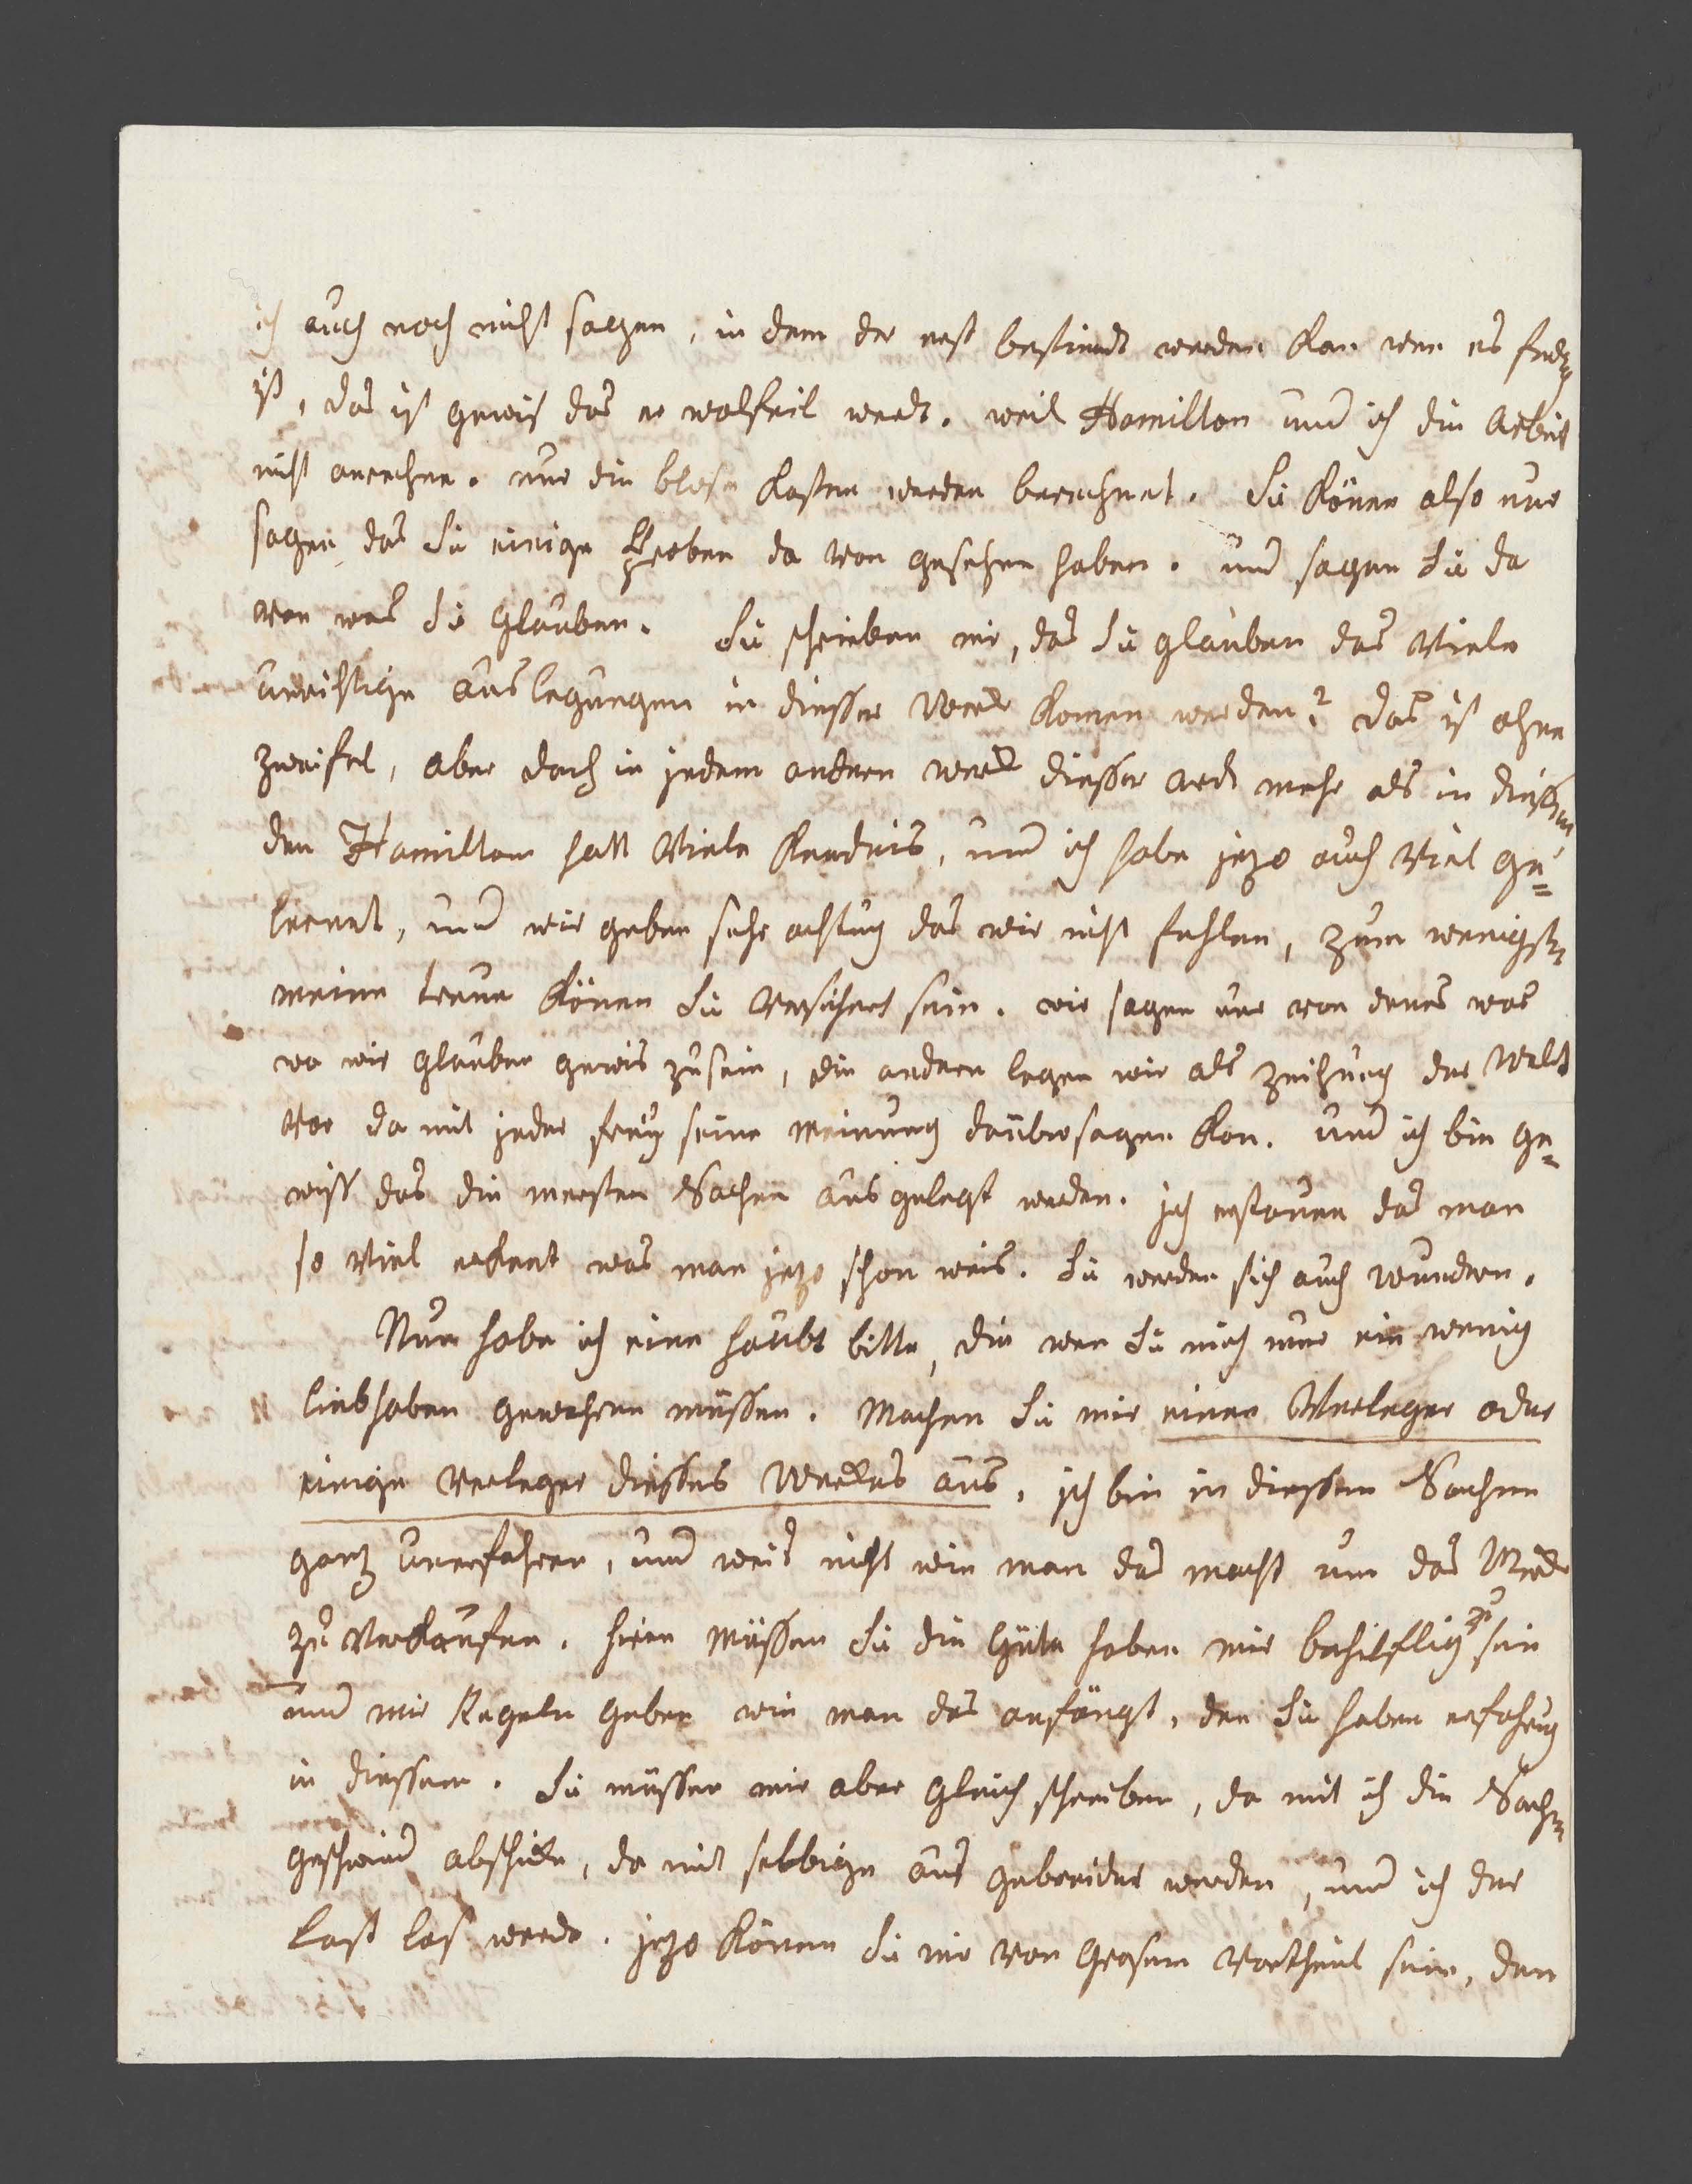 ich auch noch nicht sagen, in dem der erst bestimdt werden kan wen es ferdig
ist, das ist gewis das er wolfeil werd. weil Hamilton und ich die Arbeit
nicht anrechnen. nur die blose kosten werden berechnet. Sie könen also nur
sagen das Sie einige Proben da von gesehen haben. und sagen Sie da
von was Sie glauben. Sie schreiben mir, das Sie glauben das Viele
unrichtige auslegungen in diesser Werck komen werden? das ist ohne
zweifel, aber doch in jedem andren werck diesser ardt mehr als in diessem
den Hamilton hatt Viele kendnis, und ich habe jezo auch Viel ge=
lernet, und wir geben sehr achtung das wir nicht fehlen, zum wenigsten
meine treue könen Sie versichert sein. wir sagen nur von denes was
wo wir glauben gewis zu sein, die andren legen wir als zeichnung der Welt
vor da mit jeder frey seine meinung darüber sagen kan. und ich bin ge=
wiss das die mersten Sachen aus gelegt werden. ich erstaune das man
so Viel erkent was man jezo schon weis. Sie werden sich auch wundren.
Nun habe ich eine haubt bitte, die wen Sie mich nur ein wenig
liebhaben gewehren müssen. Machen Sie mir einen Verleger oder
einige Verleger diesses Werckes aus, ich bin in diessen Sachen
ganz unerfahren, und weis nicht wie man das macht um das Werck
zu verkaufen. hiren müssen Sie die Güte haben mir behilflig zu sein
und mir Regeln geben wie man das anfängt, den Sie haben erfahrung
in diessem. Sie müssen mir aber gleich schreiben, da mit ich die Sachen
geschwind abschicke, da mit selbbige aus gebreidet werden, und ich der
last los werde. jezo könen Sie mir von Grosem Vortheil sein, den